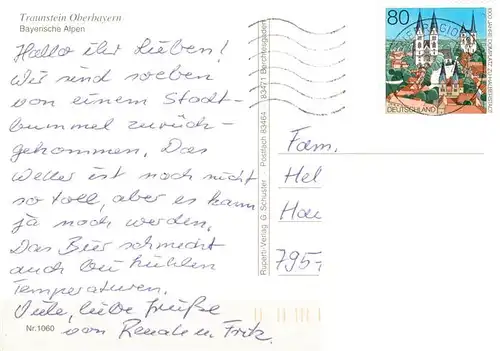 Traunstein Oberbayern
Bayerische Alpen
Hallo ihr Lieben!
Wir sind soeben
von einem Stadt-
bummel zurück-
gekommen. Das
Wetter ist noch nicht
so toll, aber es kann
ja noch werden.
Das Bier schmeckt
auch bei kühlen
Temperaturen.
Viele, liebe Grüße
von Renate u. Fritz.
Nr.1060
Ruperti-Verlag G. Schuster Postfach 83464 83471 Berchtesgaden
80
DEUTSCHLAND
1000 JAHRE DOMPLATZ HALBERSTADT
Fam.
Hel
Hau
795-